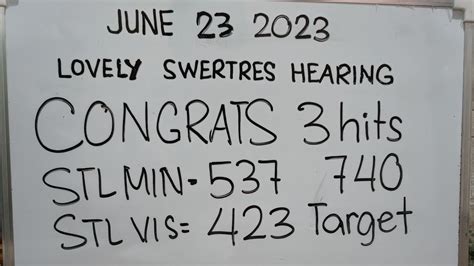 JUNE 23 2023
LOVELY SWERTRES HEARING
CONGRATS 3hits
STL MIN- 537 740
STL VIS= 423 Target